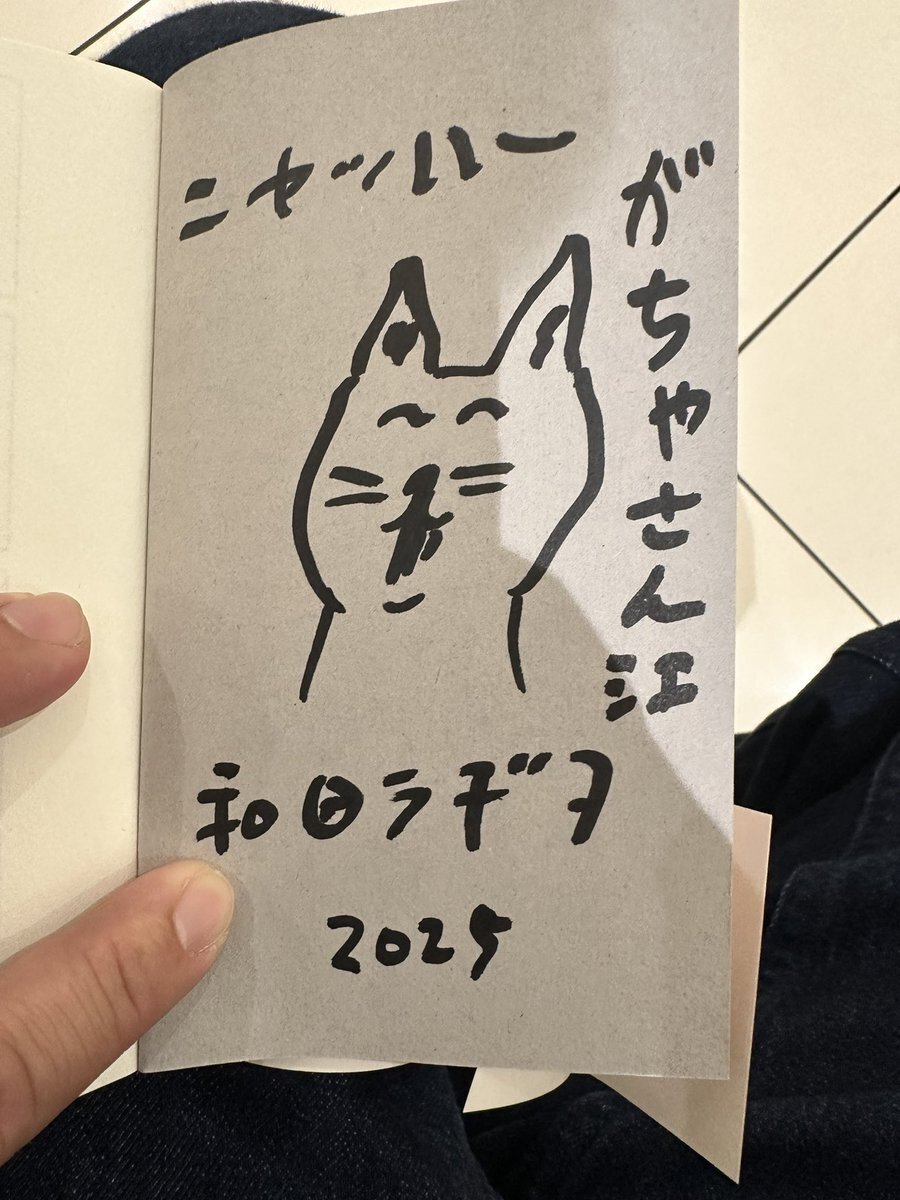 ニャッハー
がちゃさん江
和田ラヂヲ
2025